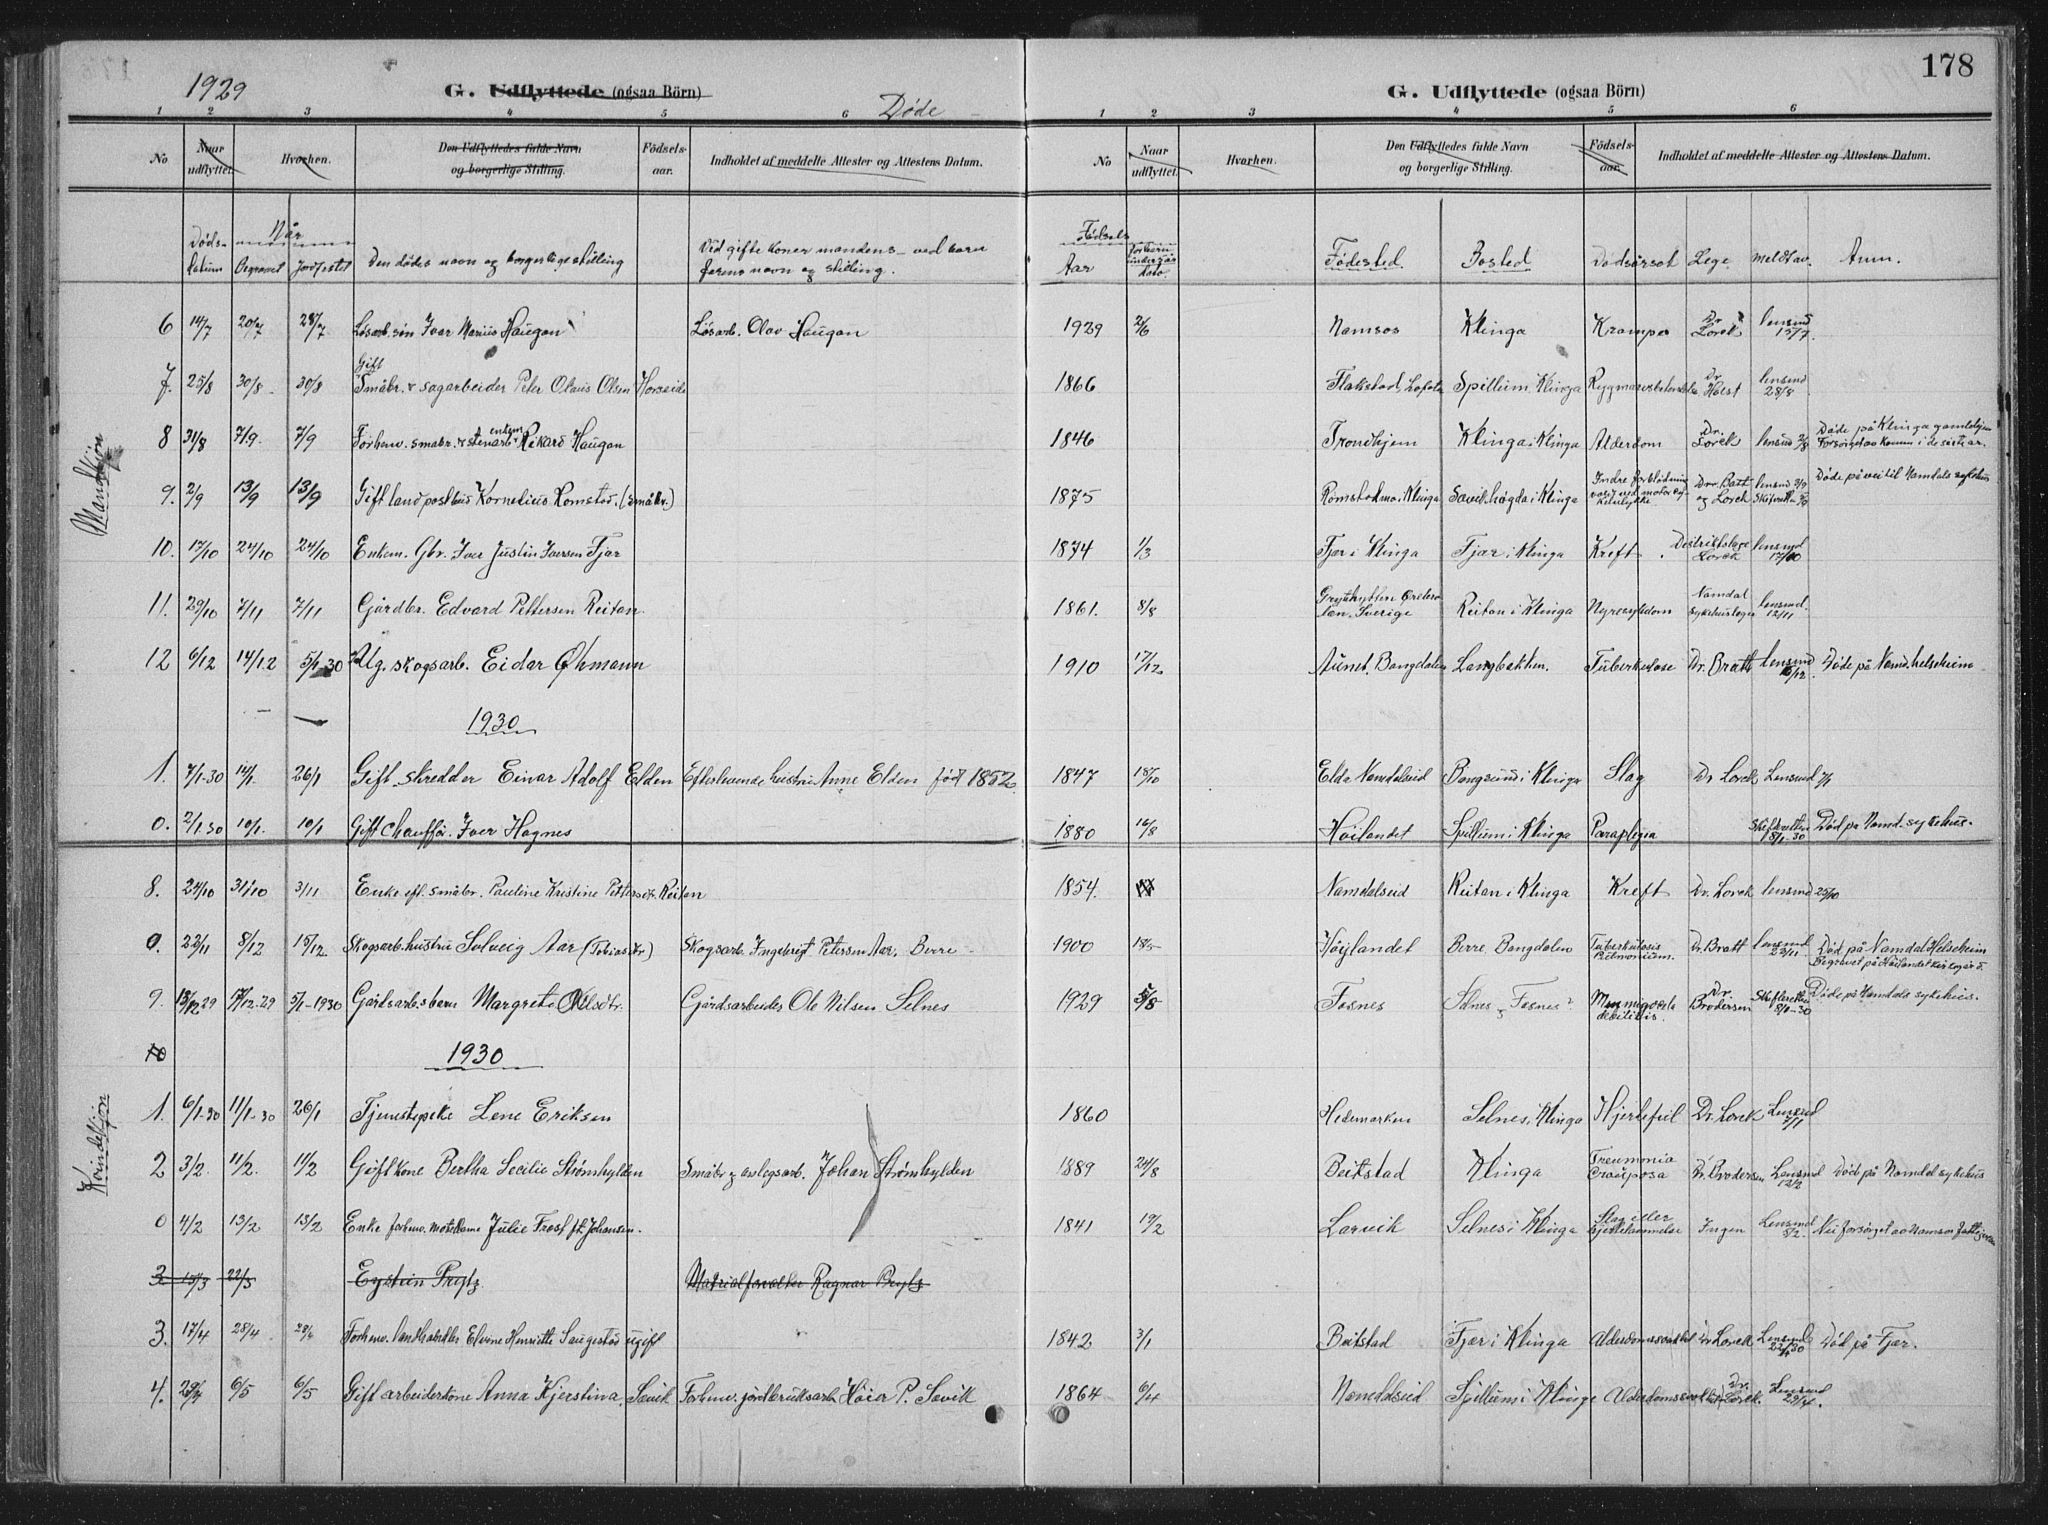 1929
G. Udflyttede (ogsaa Börn)
Døde
G. Udflyttede (ogsaa Börn)
178
1 2 3 4 5 6 1 2 3 4 5 6
No Naar udflyttet. Hvorhen. Den Udflyttedes fulde Navn og borgerlige Stilling. Födsels-aar. Indholdet af meddelte Attester og Attestens Datum.
No Naar udflyttet. Hvorhen. Den Udflyttedes fulde Navn og borgerlige Stilling. Födsels-aar. Indholdet af meddelte Attester og Attestens Datum.
Døds-datum Når Begravet Jordfestet Den dødes navn og borgerlige stilling Ved gifte koner mandens - ved barn farens navn og stilling. Fødsels Aar dato Fødested Bosted Dødsårsak Lege Meldt av Anm.
Mandkjøn
6 14/7 20/7 28/7 Løsarb. søn Ivar Marius Haugan Løsarb. Olav Haugan 1929 2/6 Namsos Klinga Krampe Dr Lorck lensmd 15/7
7. 25/8 30/8 30/8 Gift Småbr. & sagarbeider Peter Olaus Olsen Horseide 1866 Flakstad, Lofoten Spillum i Klinga Dr. Holst lensmd 28/8
8 31/8 7/9 7/9 Forhenv. småbr. & stenarb. enkem. Rikard Haugan 1846 Trondhjem Klinga i Klinga Alderdom Dr. Lorck lensmd Døde på Klinga gamlehjem Forsørget av komm. i de siste år.
9. 2/9 13/9 13/9 Gift landpostbud Kornelius Romstad. (småbr.) 1875 Romstadmo i Klinga Savikhøgda i Klinga Indre forblødning voldt ved motorcykkelulykke Dr. Bratt og Lorck lensmd 3/9 Døde på vei til Namdals sykehus
10. 17/10 24/10 24/10 Enkem. Gbr. Iver Justin Iversen Fjær 1874 1/3 Fjær i Klinga Fjær i Klinga Kreft Distriktslæge Lorck lensmd 17/10
11. 29/10 7/11 7/11 Gårdbr. Edvard Pettersen Reitan 1861. 8/8 Grythytten Ørebro len. Sverige Reitan i Klinga Nyresykdom Namdal sykehuslegen lensmd. 12/11
12 6/12 14/12 5/1 30 Ug. skogsarb. Eidar Øhmann 1910 17/12 Aunet, Bangdalen Langbakken. Tuberkulose Dr. Bratt lensmd 10/12 Døde på Namd. helseheim
1930
1. 7/1-30 14/1. 26/1 Gift skredder Einar Adolf Elden Efterlevende hustru Anne Elden født 1852. 1847 18/10 Elda Namdalseid Bangsund i Klinga Slag Dr Lorck Lensmd 7/1
0. 2/1.30 10/1. 10/1 Gift Chauffør. Iver Hagnes 1880 16/8 Høilandet Spillum i Klinga Paraplegia Skifteretten 8/1-30 Død på Namd. sykehus.
8. 24/10 31/10 3/11 Enke eft. småbr. Pauline Kristine Pettersdtr. Reitan 1854. Namdalseid Reitan i Klinga Kreft Dr. Lorck lensmd 25/10
0. 22/11 8/12 15/12 Skogsarb. hustru Solveig Aar (Tobiasdtr) Skogsarb. Ingebrigt Petersen Aar, Berre 1900 Høylandet Berre, Bangdalen Tuberkulosis Pulmonium. Dr. Bratt lensmd 23/11 Død på Namdal Helseheim Begravet på Høilandet kirkegård.
9. 13/12 29 17/12-29 5/1-1930 Gårdsarb. barn Margrete Olsdtr. Gårdsarbeider Ole Nilsen Selnes 1929 5/8 Fosnes Selnes, Fosnes debilitis. Dr Brodersen Skifteretten 8/1-30 Døde på Namdals sykehus.
10 1930
Kvindekjøn
1. 6/1-30 11/1-30 26/1 Tjenstepike Lene Eriksen 1860 Hedemarken Selnes i Klinga Hjertefeil Dr. Lorck Lensmd 7/1
2 3/2. 11/2. 11/2 Gift kone Bertha Secilie Strømhylden Småbr & anlegsarb. Johan Strømhylden 1889 24/8 Beitstad Klinga Pneumonia Crouposa Dr. Brodersen Lensmd 12/2 Død på Namdal sykehus
0 4/2 13/2 13/2 Enke forhenv. Julie Frost fh Johansen. 1841 19/2 Larvik Selnes i Klinga Slag eller hjertelammelse Ingen Lensmd 5/2. forsørget av Namsos fattigvesen
3. 15/3 22/3 Eystein Prytz Matrialforvalter Ragnar Prytz
3. 17/4 28/4 28/4 Forhenv. Elvine Henriette Saugestad ugift 1842 3/1 Beitstad Fjær i Klinga Alderdomssvakhet Dr. Lorck Lensmd 22/4 30 Død på Fjær.
4. 29/4 6/5 6/5 Gift arbeiderkone Anna Kjerstina Savik Forhenv. jordbruksarb. Høier P. Savik 1864 6/4 Namdalseid Spillum i Klinga Alderdomssvakhet Dr. Lorck. Lensmd 29/4.